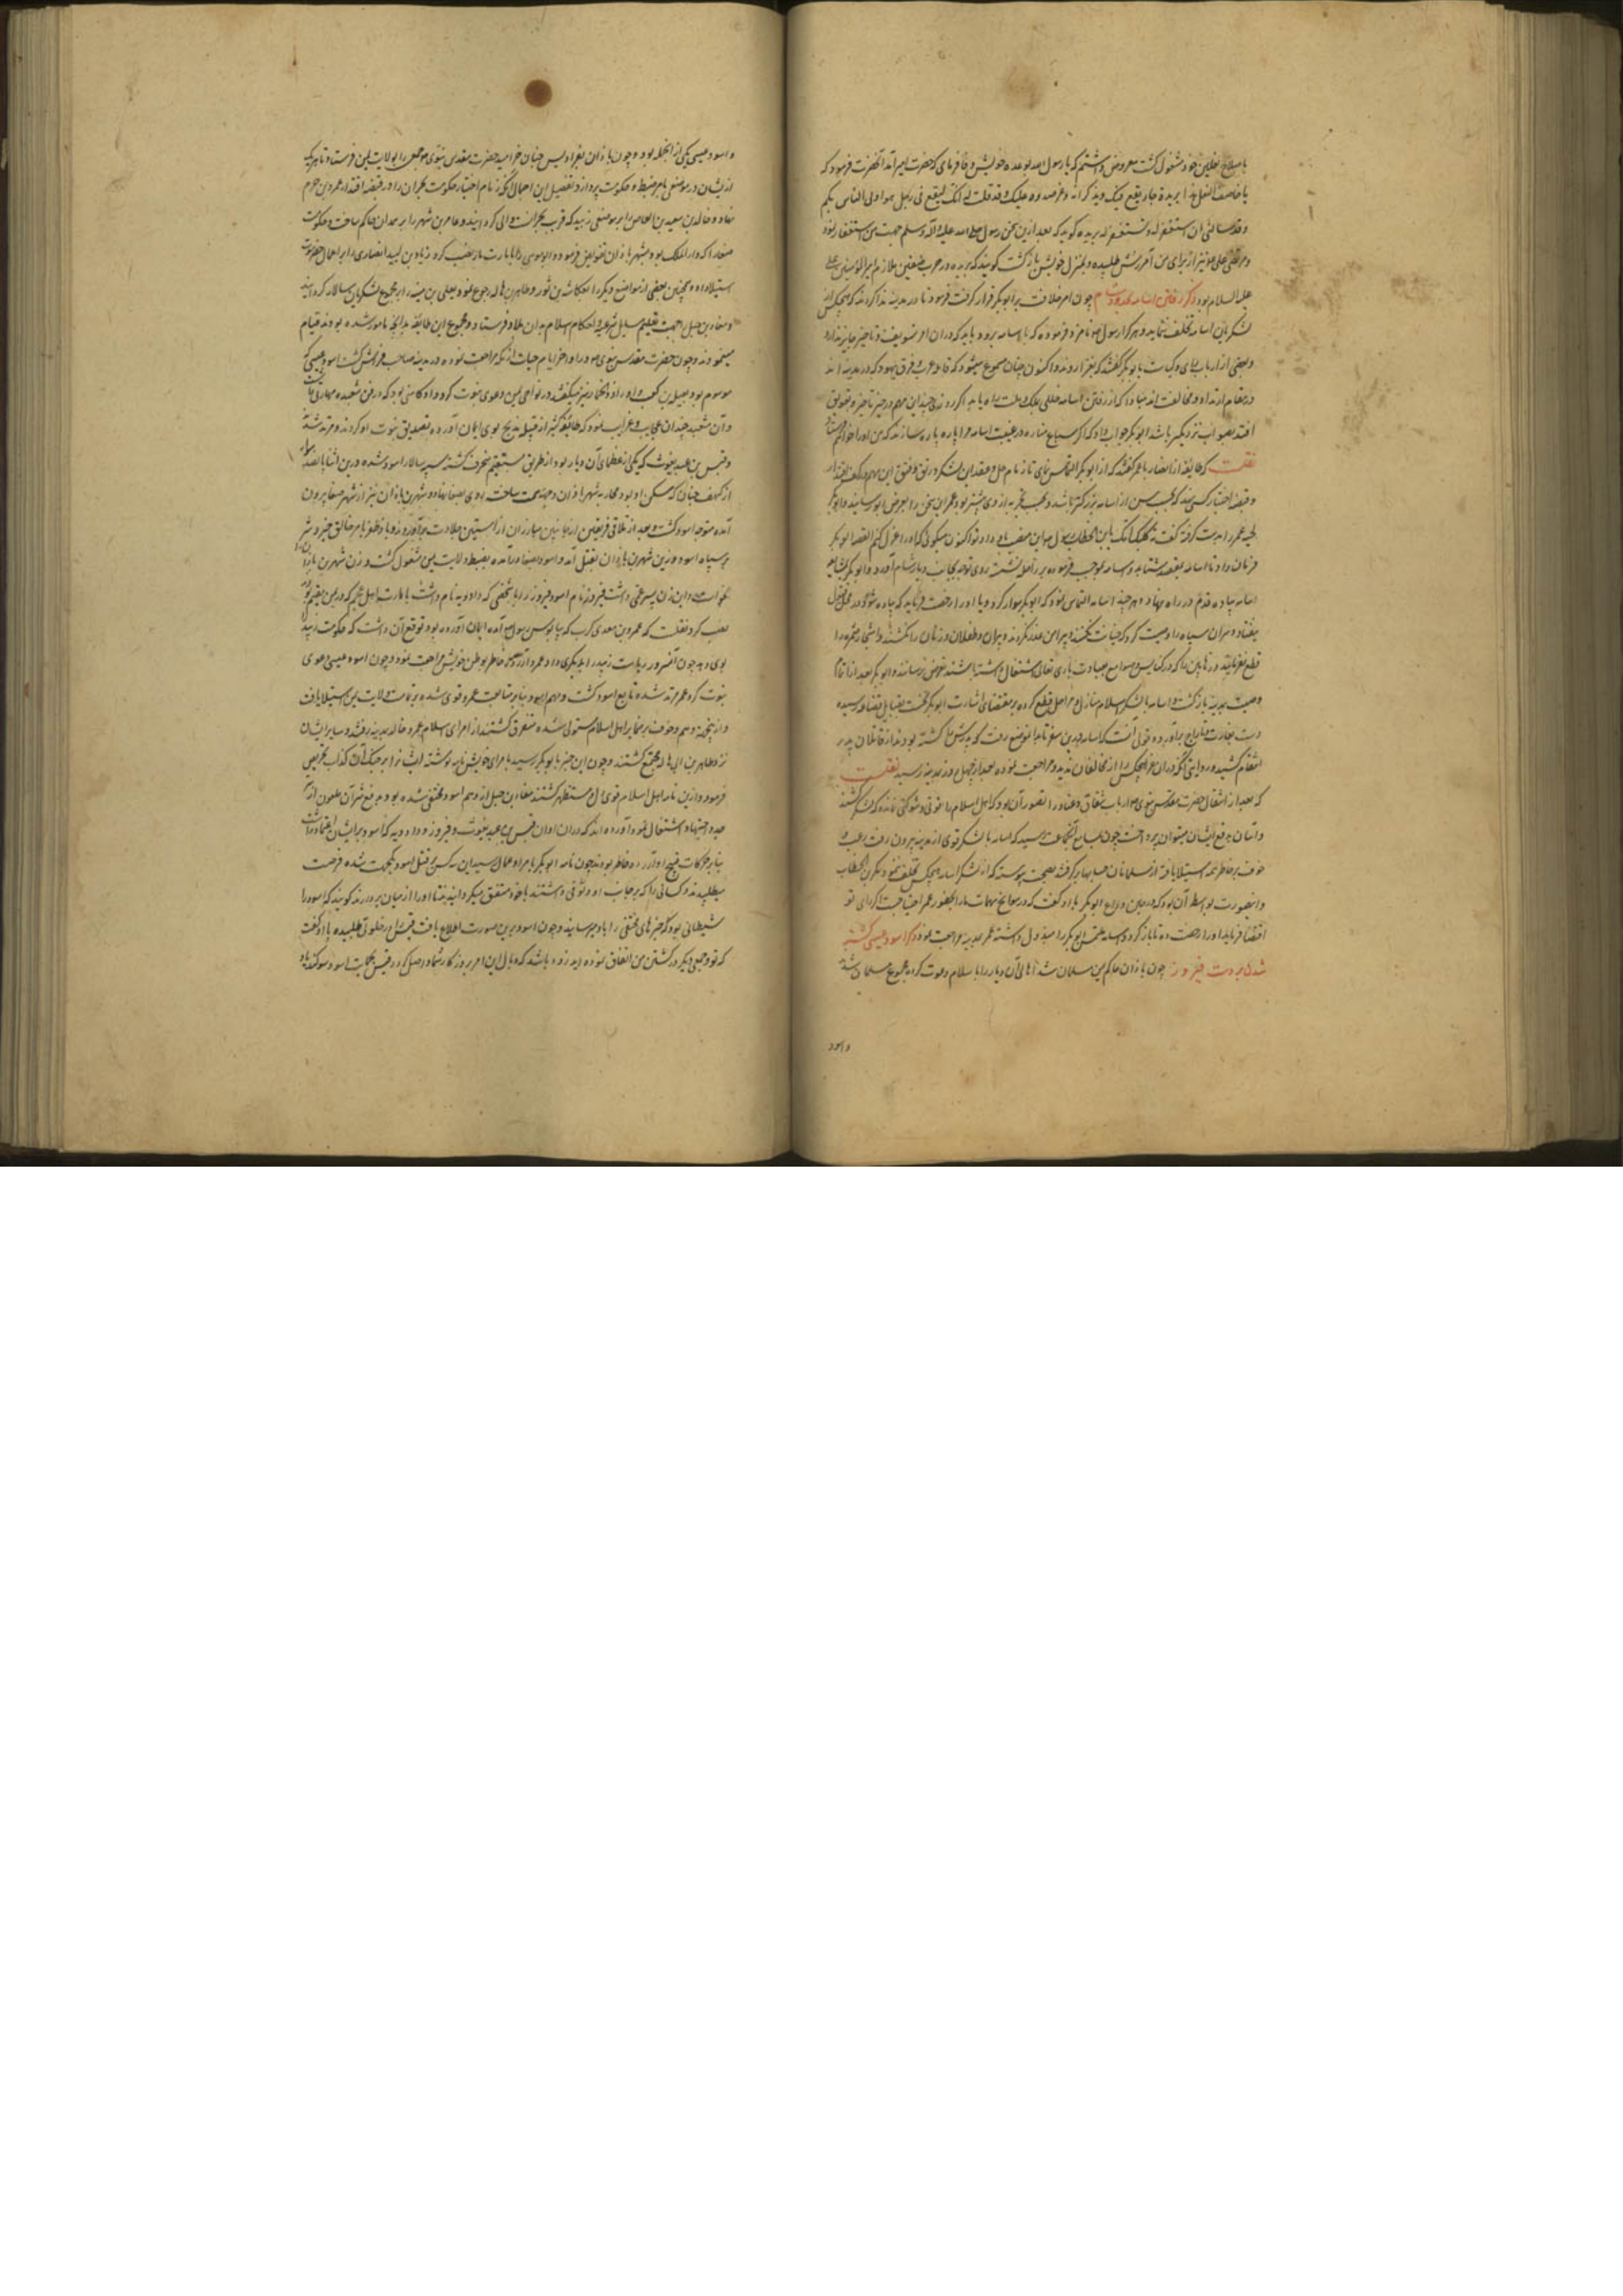 باصلاح نعلین خود مشغول گشت معروض داشتم که یا رسول الله بوعده خویش وفا فرمای که حضرت امیر آمد آنحضرت فرمود که
یا خاصف النعل هذا بریدة
وقد سألنی ان استغفر له بریده گوید که بعد ازین سخن رسول صلی الله علیه وآله وسلم جهت من استغفار نمود
و مرتضی علی نیز از برای من آمرزش طلبیده و بمنزل خویش بازگشت گویند که بریده در حرب صفین ملازم امیر المؤمنین علی
علیه السلام بود ذکر رفتن اسامه بحدود شام چون امر خلافت بر ابوبکر قرار گرفت فرمود تا در مدینه ندا کردند که هیچکس از
لشکریان اسامه تخلف ننماید و هر کرا رسول نامزد فرموده که با اسامه برود باید که در ان امر تسویف و تاخیر جایز ندارد
و بعضی از ارباب رای و کیاست با ابوبکر گفتند که اکنون چنان مسموع میشود که قبایل عرب و فرق یهود که در مدینه اند
در مقام ارتداد و مخالفت اند مبادا که از رفتن اسامه خللی بملک و ملت راه یابد اگر روزی چند این مهم در حیز تاخیر و تعویق
افتد بصواب نزدیکتر باشد ابوبکر جواب داد که اگر سباع ضاره در غیبت اسامه مرا پاره پاره سازند که من او را خواهم فرستاد
نقلست که طایفه از انصار با عمر گفتند که از ابوبکر التماس نمای تا زمام حل و عقد این لشکر و رتق و فتق این مهم در کف اقتدار
و قبضه اختیار کسی نهد که بحسب سن از اسامه بزرگتر باشد و بحسب تجربه از وی بیشتر بود و عمر این سخن را بعرض ابوبکر رسانید و ابوبکر
لحیه عمر را بدست گرفته گفت ثکلتک امک یا ابن الخطاب رسول او را این منصب داده و تو اکنون میگویی که او را عزل کنم القصه ابوبکر
فرمان داد تا اسامه بمقصد شتابد و اسامه بموجب فرموده بر راحله نشسته روی توجه بجانب دیار شام آورد و ابوبکر بمشایعت
اسامه پیاده قدم در راه نهاد و هر چند اسامه التماس نمود که ابوبکر سوار گردد یا او را رخصت فرماید که پیاده شود در محل قبول
نیفتاد و سران سپاه را وصیت کرد که خیانت نکنند و پیرامن غدر نگردند و پیران و طفلان و زنان را نکشند و اشجار مثمره را
قطع نفرمایند و رهابین را که در کنایس و صوامع بعبادت باری تعالی اشتغال داشته باشند تعرض نرسانند و ابوبکر بعد از اتمام
وصیت بمدینه بازگشت و اسامه با لشکر اسلام منازل و مراحل قطع کرده بر مقتضای اشارت ابوبکر نخست بقبایل قضاعه رسیده
دست بغارت و تاراج برآورده قولی آنست که اسامه درین سفر تا بدان موضع رفت که پدرش کشته بودند از قاتلان پدر
انتقام کشید و روایتی آنکه در ان سفر هیچکس را از مخالفان ندید و مراجعت نموده بعد از چهل روز بمدینه رسید نقلست
که بعد از انتقال حضرت مقدس نبوی ارباب شقاق و عناد را تصور آن بود که اهل اسلام را قوتی و شوکتی نمانده که لشکر کشند
و آسان بدفع ایشان میتوان پرداخت چون بمسامع آنجماعت رسید که اسامه با لشکر قوی از مدینه بیرون رفت رعب و
خوف بر خاطر همه استیلا یافته از مسلمانان حسابها برگرفتند بصحت پیوسته که از لشکر اسامه هیچکس تخلف ننمود مگر عمر بن الخطاب
و اینصورت بواسطه آن بود که در حین وداع ابوبکر با او گفت که در سوانح مهمات ما را بحضور عمر احتیاجست اگر رای تو
اقتضا فرماید او را رخصت ده تا بازگردد و اسامه ملتمس ابوبکر را مبذول داشته عمر بمدینه مراجعت نمود ذکر اسود عنسی کشته
شدن بر دست فیروز چون باذان حاکم یمن مسلمان شد اهالی آن دیار را باسلام دعوت کرده مجموع مسلمان شدند
واسود
و اسود عنسی یکی از آنجمله بود و چون باذان بفرادیس جنان خرامید حضرت مقدس نبوی جمعی را بولایت یمن فرستاد تا هر یک
از ایشان در موضعی بامر ضبط و حکومت پردازد و تفصیل این اجمال آنکه زمام اختیار حکومت نجران را در قبضه اقتدار عمرو بن حزم
نهاد و خالد بن سعید بن العاص را بر موضعی زبید که قرب نجرانست والی گردانید و عامر بن شهر را بر همدان حاکم ساخت و حکومت
صنعا را که دار الملک بود بشهر باذان تفویض فرمود و ابو موسی را بامارت مارب نصب کرد و زیاد بن لبید انصاری را بر اعمال حضرموت
استیلا داد و همچنین بعضی از مواضع دیگر را بعکاشه بن ثور و طاهر بن هاله رجوع نمود و یعلی بن منیه را بر مجموع لشکریان سالار گردانید
و معاذ بن جبل را جهت تعلیم مسایل شرعیه و احکام اسلام بدان بلاد فرستاد و مجموع این طایفه بدانچه مامور شده بودند قیام
مینمودند و چون حضرت مقدس نبوی در اواخر ایام حیات از مکه مراجعت نموده در مدینه صاحب فراش گشت اسود عنسی که
موسوم بود بعبهلة بن کعب و او را ذو الخمار نیز میگفتند در نواحی یمن دعوی نبوت کرد و او کاهنی بود که در فن شعبده مهارتی داشت
و آن مشعبد چندان عجایب و غرایب نمود که طایفه کثیر از قبیله مذحج بوی ایمان آورده تصدیق نبوت او کردند و مرتد شدند
و قیس بن عبد یغوث که یکی از عظمای آن دیار بود از طریق مستقیم منحرف گشته سپهسالار اسود شده درین اثنا با هفتصد سوار
از کهف جنان که مسکن او بود محاربه شهر باذان وجهه همت ساخت و روی بصنعا نهاد و شهر بن باذان نیز از شهر صنعا بیرون
آمده متوجه اسود گشت و بعد از تلاقی فریقین از جانبین مبارزان از آستین جلادت برآوردند و باد ظفر بامر خالق خیر و شر
بر سپاه اسود وزید شهر بن باذان بقتل آمد و اسود بصنعا درآمده بضبط ولایت یمن مشغول گشت و زن شهر بن باذان را
بخواست و این زن پسر عمی داشت فیروز نام اسود فیروز را با شخصی که دادویه نام داشت بامارت اهل عجم که در یمن مقیم بودند
نصب کرد نقلست که عمرو بن معدی کرب که بپابوس رسول آمده ایمان آورده بود توقع آن داشت که حکومت زبید
بوی دهد چون آنسرور ریاست زبید را بدیگری داد عمرو آزرده خاطر بوطن خویش مراجعت نمود و چون اسود عنسی دعوی
نبوت کرد عمرو مرتد شده تابع اسود گشت و مهم اسود بنابر متابعت عمرو قوی شده بر تمامت ولایت یمن استیلا یافت
و ازینجهة وهم و خوف بر ضمایر اهل اسلام مستولی شده متفرق گشتند از امرای اسلام عمرو و خالد بمدینه رفتند و سایر ایشان
نزد طاهر بن ابی هاله مجتمع گشتند و چون این خبر بابوبکر رسید بامرای خویش نامه نوشته ایشانرا بر جنگ آن کذاب تحریص
فرمود و ازین نامه اهل اسلام قوی دل و مستظهر گشتند معاذ بن جبل از وهم اسود مختفی شده بود بدفع شر آن ملعون از
جد و اجتهاد اشتغال نمود آورده اند که در ان اوان قیس بن عبد یغوث و فیروز و دادویه که اسود بر ایشان اعتماد داشت
بنابر حرکات قبیح او آزرده خاطر بودند چون نامه ابوبکر بامرا و عمال رسید این سه کس بر قتل اسود یکجهت شده فرصت
میطلبیدند و کسانی را که بر جانب او وثوقی داشتند با خود متفق میگردانیدند تا او را از میان بردارند گویند که اسود را
شیطانی بود که خبرهای مخفی را باو میرسانید و چون اسود برین صورت اطلاع یافت قیس را در خلوتی طلبیده با او گفت
که تو و جمعی دیگر در کشتن من اتفاق نموده اید زود باشد که وبال این امر بروزگار شما واصل گردد قیس بحیات اسود سوگند یاد